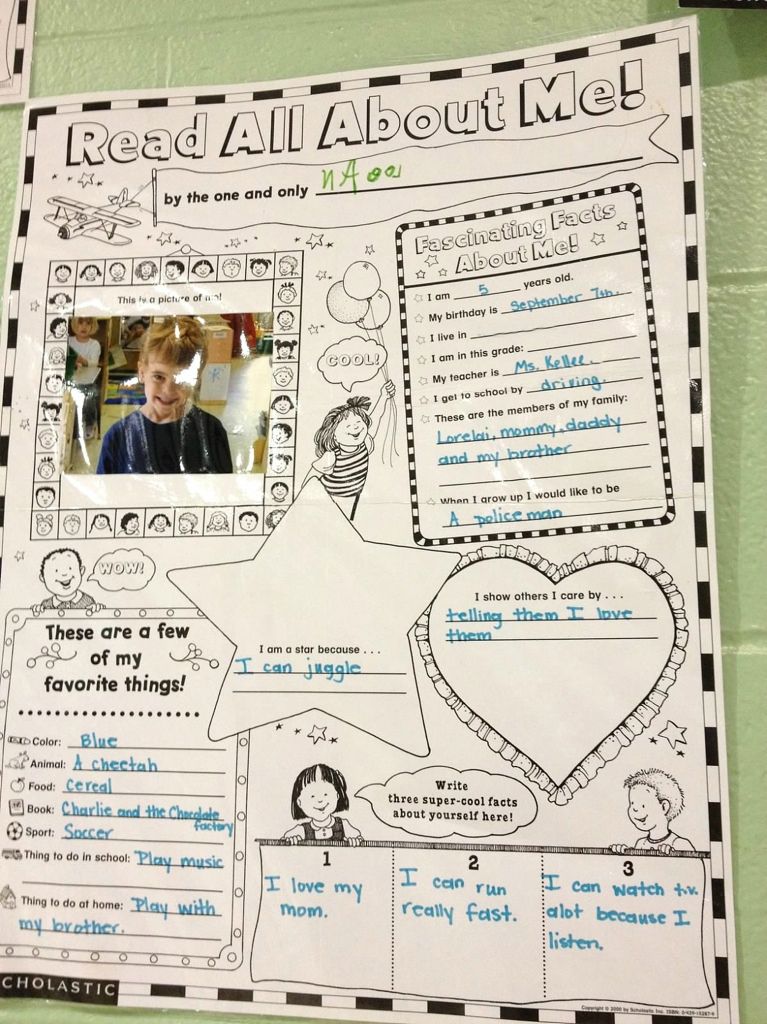 Read All About Me!
by the one and only
This is a picture of me!
COOL!
Fascinating Facts
About Me!
I am 5 years old.
My birthday is September 7th.
I live in
I am in this grade:
My teacher is Ms. Kellee.
I get to school by driving.
These are the members of my family:
Lorelai, mommy, daddy
and my brother
When I grow up I would like to be
A police man
WOW!
These are a few
of my
favorite things!
Color: Blue
Animal: A cheetah
Food: Cereal
Book: Charlie and the Chocolate
factory
Sport: Soccer
Thing to do in school: Play music
Thing to do at home: Play with
my brother.
I am a star because . . .
I can juggle
I show others I care by . . .
telling them I love
them
Write
three super-cool facts
about yourself here!
1
I love my
mom.
2
I can run
really fast.
3
I can watch t.v.
alot because I
listen.
CHOLASTIC